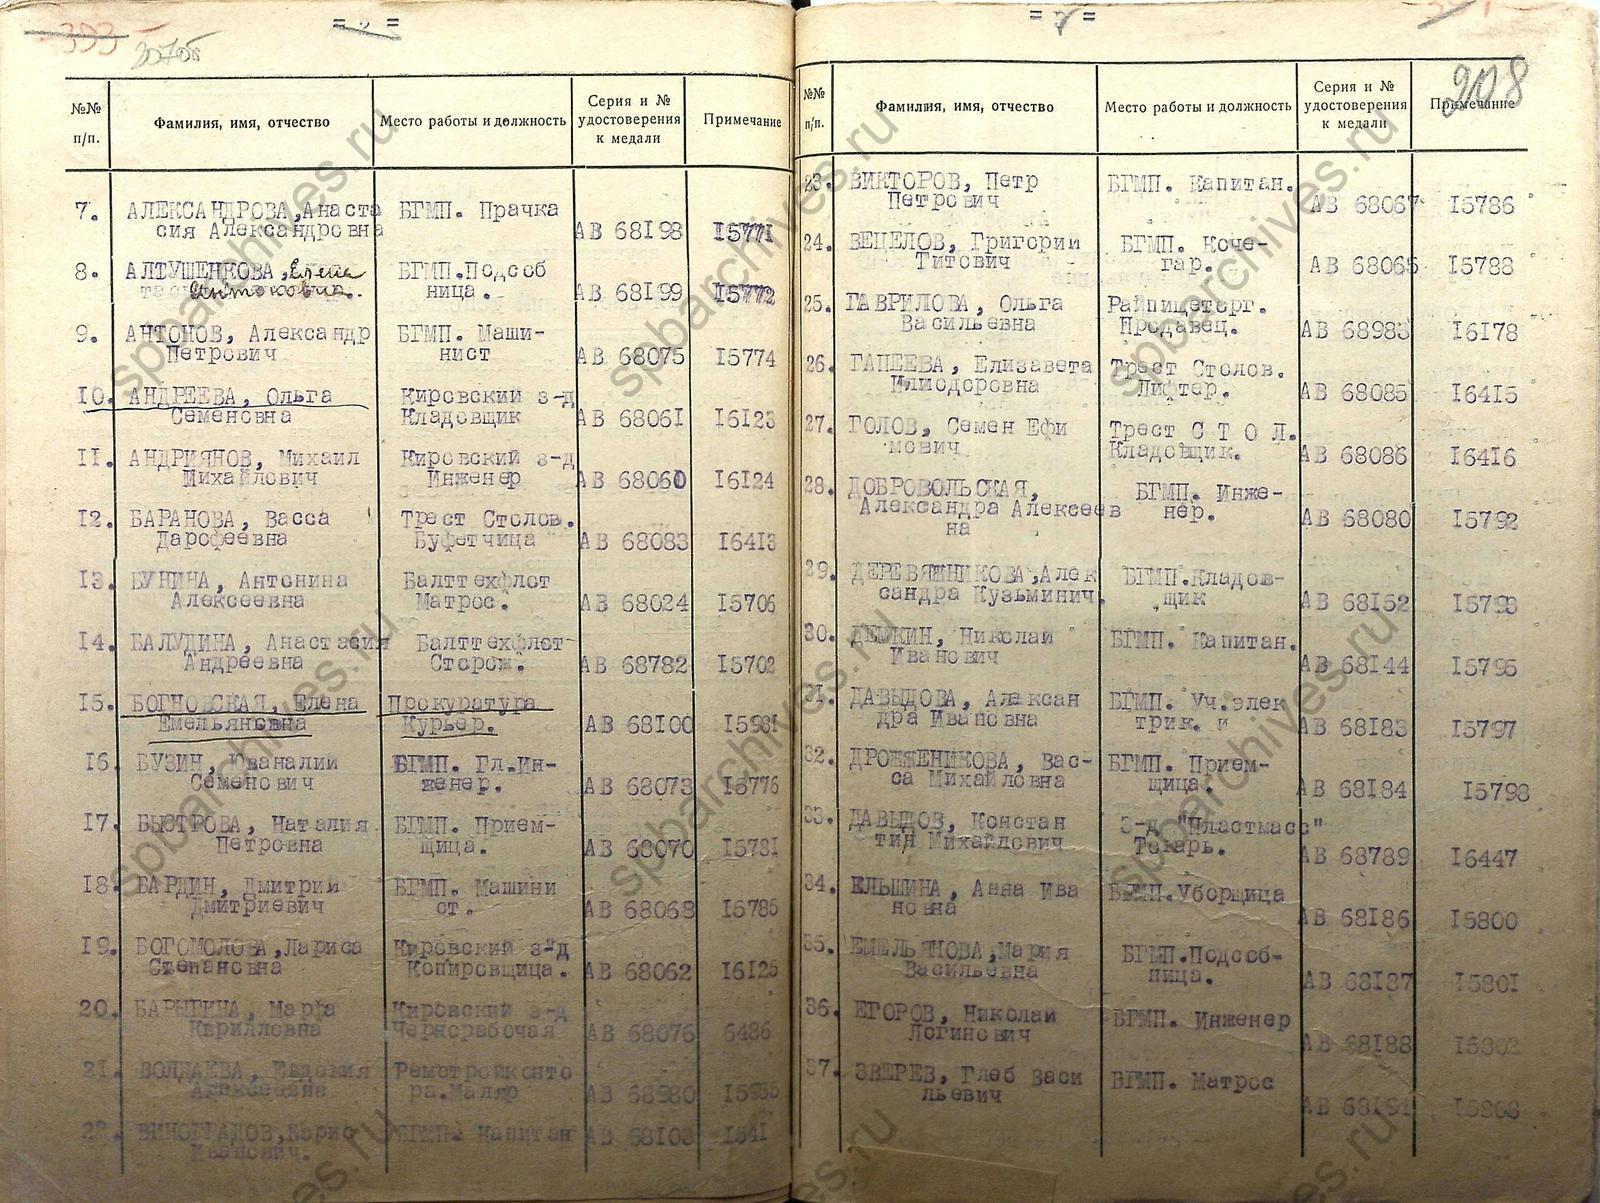 393
307об
= =
№№ п/п. Фамилия, имя, отчество Место работы и должность Серия и № удостоверения к медали Примечание
7. АЛЕКСАНДРОВА,Анаста БГМП. Прачка
сия Александровна АВ 68198 15771
8. АЛТУШЕНКОВА,Елена БГМП.Подсоб
Антоновна. ница. АВ 68199 15772
9. АНТОНОВ, Александр БГМП. Маши-
Петрович нист АВ 68075 15774
10. АНДРЕЕВА, Ольга Кировский з-д
Семеновна Кладовщик АВ 68061 16123
11. АНДРИЯНОВ, Михаил Кировский з-д
Михайлович Инженер АВ 68060 16124
12. БАРАНОВА, Васса Трест Столов.
Дарофеевна Буфетчица АВ 68083 16413
13. БУНИНА, Антонина Балттехфлот
Алексеевна Матрос. АВ 68024 15706
14. БАЛУДИНА, Анастасия Балттехфлот
Андреевна Сторож. АВ 68782 15702
15. БОГНОВСКАЯ, Елена Прокуратура
Емельяновна Курьер. АВ 68100 15981
16. БУЗИН, Юваналий БГМП. Гл.Ин-
Семенович женер. АВ 68073 15776
17. БЫСТРОВА, Наталия БГМП. Прием-
Петровна щица. АВ 68070 15781
18. БАРДИН, Дмитрий БГМП. Машини
Дмитриевич ст. АВ 68068 15785
19. БОГОМОЛОВА,Лариса Кировский з-д
Степановна Копировщица. АВ 68062 16125
20. БАРЫГИНА, Марфа Кировский з-д
Кирилловна Чернорабочая АВ 68076 6486
21. ВОЛДАЕВА, Евдокия Ремстройконто
Алексеевна ра.Маляр АВ 68980
22. ВИНОГРАДОВ,Борис БГМП. Капитан АВ 68103
Иванович.
= 7 =
208
№№ п/п. Фамилия, имя, отчество Место работы и должность Серия и № удостоверения к медали Примечание
23. ВИКТОРОВ, Петр БГМП. Капитан.
Петрович АВ 68067 15786
24. ВЕЦЕЛОВ, Григорий БГМП. Коче-
Титович гар. АВ 68065 15788
25. ГАВРИЛОВА, Ольга Райпищеторг.
Васильевна Продавец. АВ 68983 16178
26. ГАПЕЕВА, Елизавета Трест Столов.
Илиодоровна Лифтер. АВ 68085 16415
27. ГОЛОВ, Семен Ефи Трест С Т О Л.
мович Кладовщик. АВ 68086 16416
28. ДОБРОВОЛЬСКАЯ, БГМП. Инже-
Александра Алексеев нер. АВ 68080 15792
на
29. ДЕРЕВЯЖНИКОВА,Алек БГМП.Кладов-
сандра Кузьминич. щик АВ 68152 15793
30. ДЕШКИН, Николай БГМП. Капитан.
Иванович АВ 68144 15795
31. ДАВЫДОВА, Алексан БГМП. Уч.элек
дра Ивановна трик. АВ 68183 15797
32. ДРОЖЖЕНИКОВА, Вас- БГМП. Прием-
са Михайловна щица. АВ 68184 15798
33. ДАВЫДОВ, Констан З-д "Пластмасс"
тин Михайлович Токарь. АВ 68789 16447
34. ЕЛЬШИНА, Анна Ива БГМП.Уборщица
новна АВ 68186 15800
35. ЕМЕЛЬЯНОВА,Мария БГМП.Подсоб-
Васильевна ница. АВ 68187 15801
36. ЕГОРОВ, Николай БГМП. Инженер
Логинович АВ 68188 15802
37. ЗВЕРЕВ, Глеб Васи БГМП. Матрос
льевич АВ 68191 15808
spbarchives.ru
spbarchives.ru
spbarchives.ru
spbarchives.ru
spbarchives.ru
spbarchives.ru